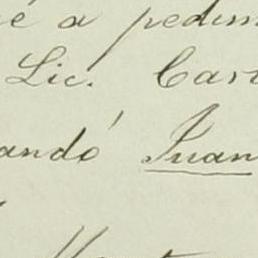 é a pedim
Lic. Cas
andó Juan